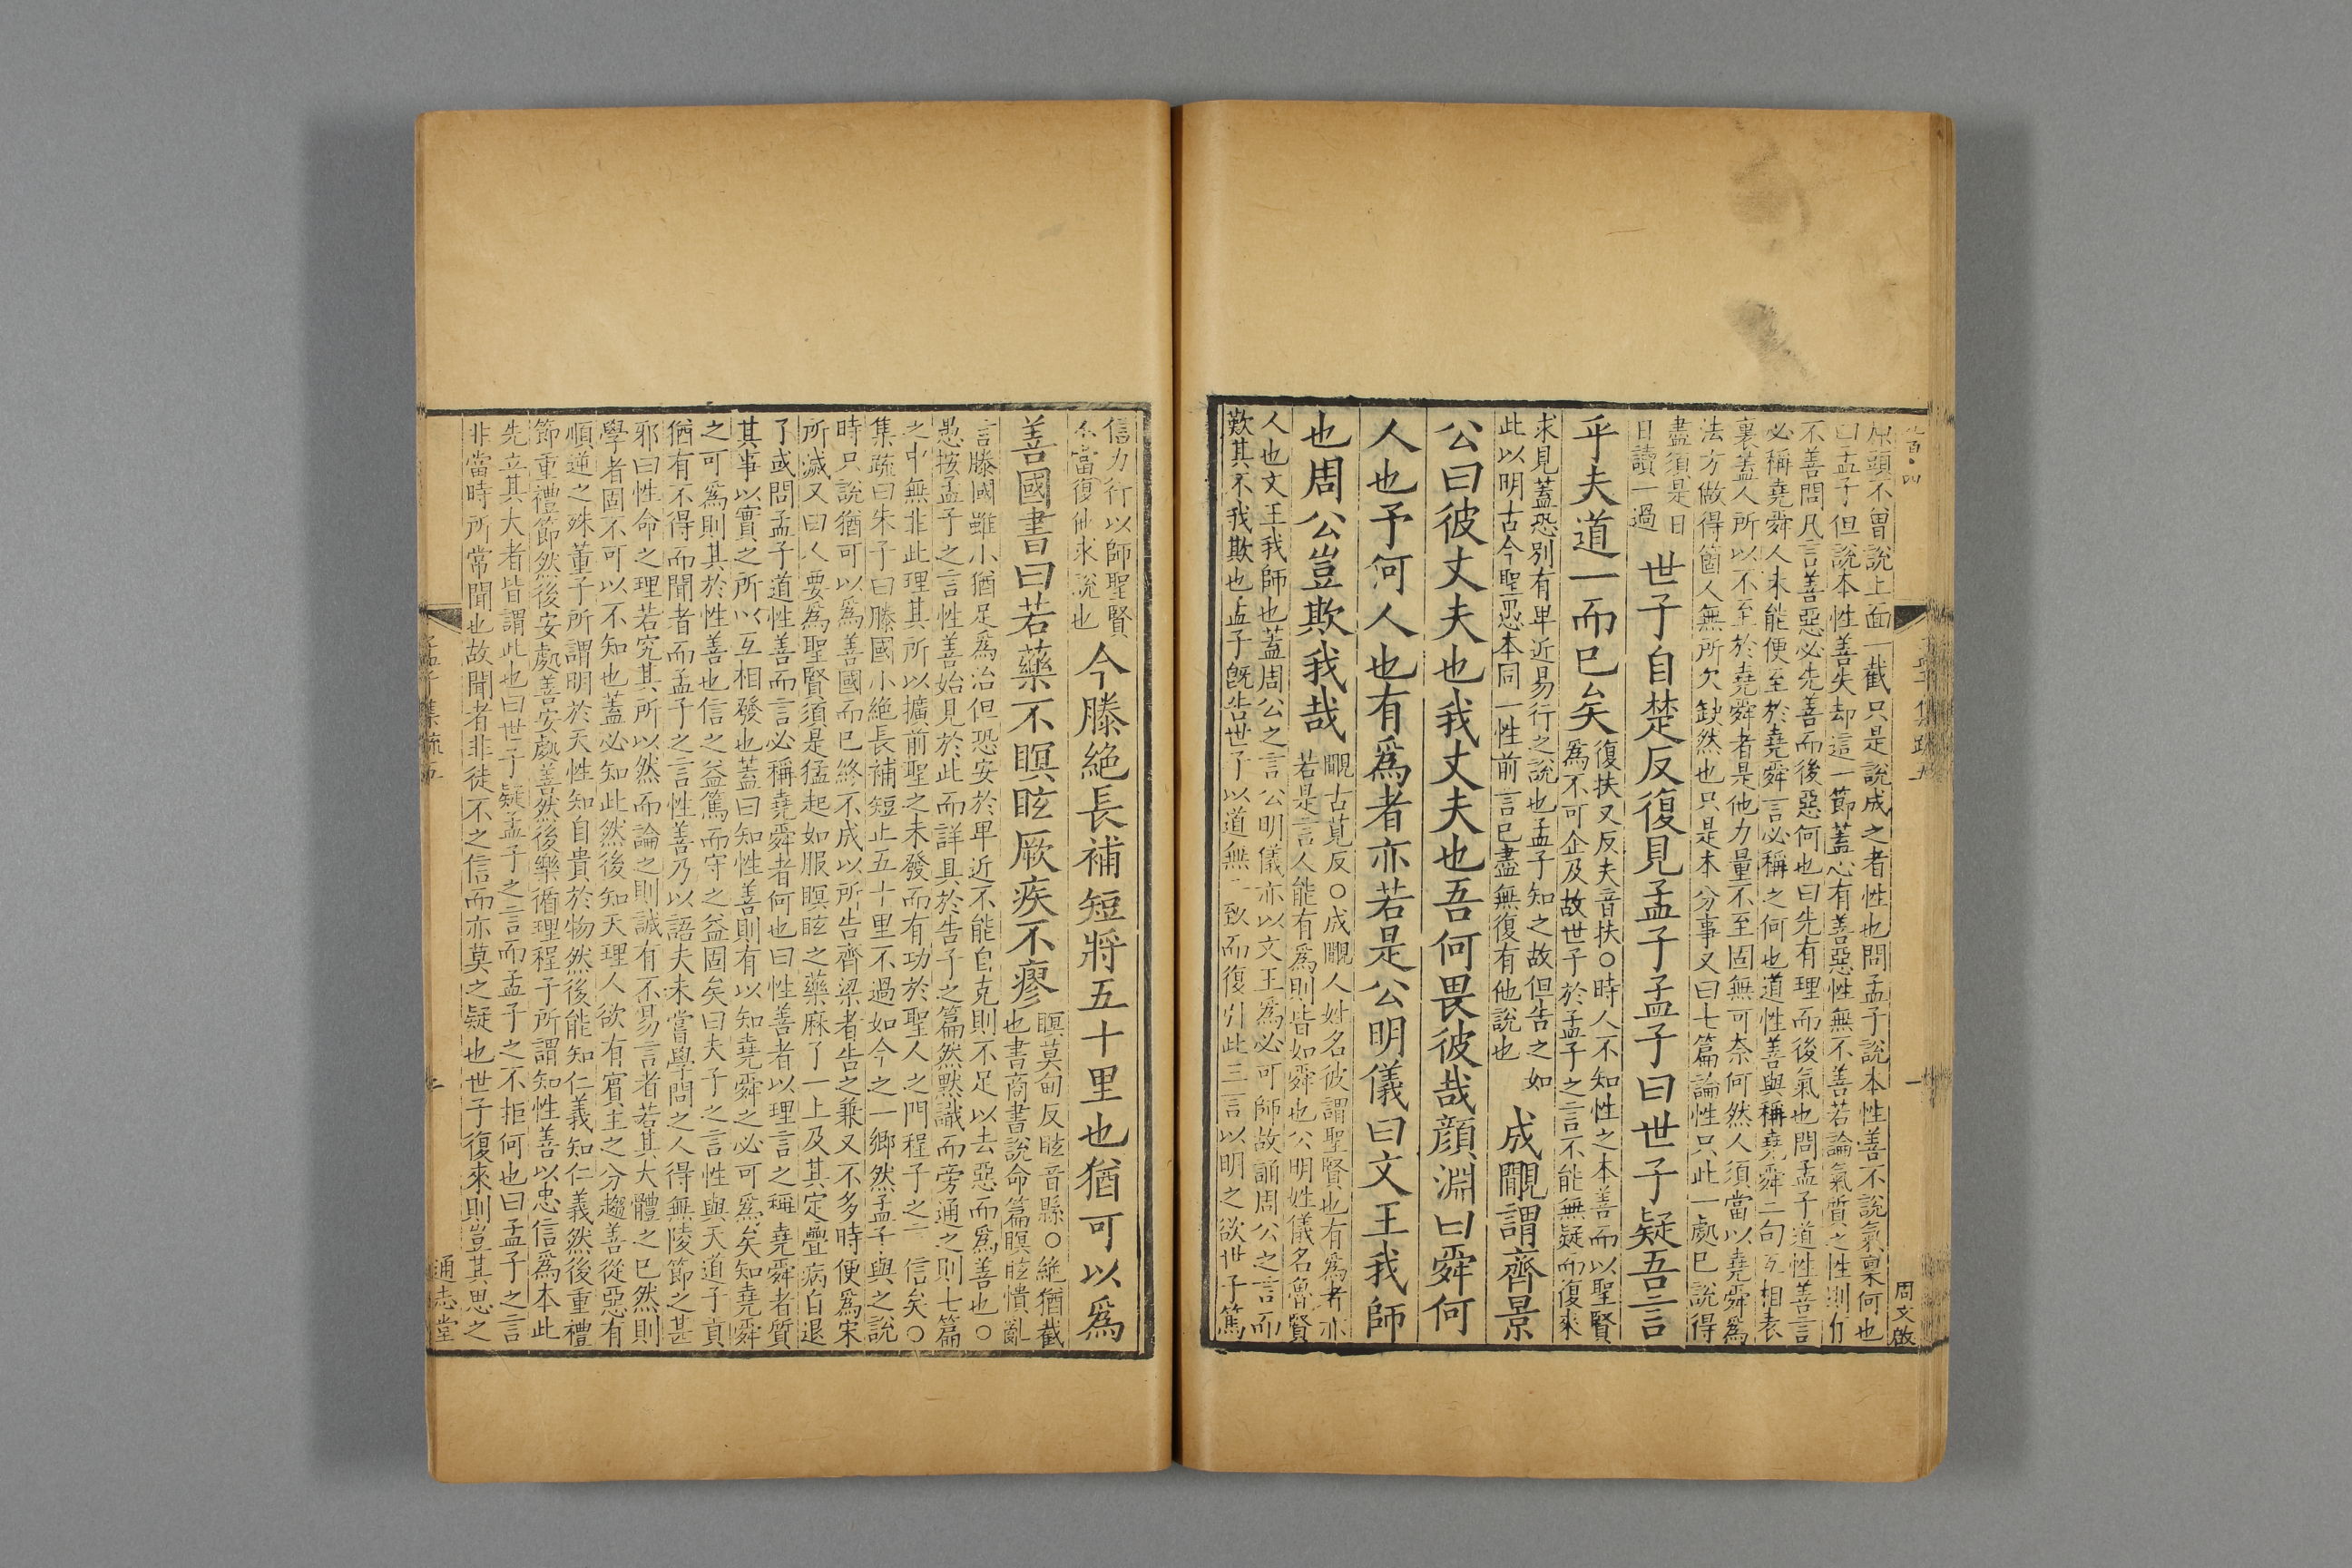 屈頭不曾說上面一截只是說成之者性也問孟子說本性善不說氣稟何也
曰孟子但說本性善失却這一節蓋心有善惡性無不善若論氣質之性則有
不善問凡言善惡必先善而後惡何也曰先有理而後氣也問孟子道性善言
必稱堯舜人未能便至於堯舜言必稱之何也道性善與稱堯舜二句互相表
裏蓋人所以不至於堯舜者是他力量不至固無可奈何然人須當以堯舜爲
法方做得箇人無所欠缺然也只是本分事又曰七篇論性只此一處已說得
盡須是日
日讀一過
世子自楚反復見孟子孟子曰世子疑吾言
乎夫道一而已矣
復扶又反夫音扶○時人不知性之本善而以聖賢
爲不可企及故世子於孟子之言不能無疑而復來
求見蓋恐別有卑近易行之說也孟子知之故但告之如
此以明古今聖愚本同一性前言已盡無復有他說也
成覵謂齊景
公曰彼丈夫也我丈夫也吾何畏彼哉顏淵曰舜何
人也予何人也有爲者亦若是公明儀曰文王我師
也周公豈欺我哉
覵古莧反○成覵人姓名彼謂聖賢也有爲者亦
若是言人能有爲則皆如舜也公明姓儀名魯賢
人也文王我師也蓋周公之言公明儀亦以文王爲必可師故誦周公之言而
歎其不我欺也孟子旣告世子以道無二致而復引此三言以明之欲世子篤
周文啟
信力行以師聖賢
不當復他求說也
今滕絶長補短將五十里也猶可以爲
善國書曰若藥不瞑眩厥疾不瘳
瞑莫甸反眩音縣○絶猶截
也書商書說命篇瞑眩憒亂
言滕國雖小猶足爲治但恐安於卑近不能自克則不足以去惡而爲善也○
愚按孟子之言性善始見於此而詳具於告子之篇然默識而旁通之則七篇
之中無非此理其所以擴前聖之未發而有功於聖人之門程子之言信矣○
集疏曰朱子曰滕國小絶長補短止五十里不過如今之一鄉然孟子與之說
時只說猶可以爲善國而已終不成以所告齊梁者告之兼又不多時便爲宋
所滅又曰人要爲聖賢須是猛起如服瞑眩之藥麻了一上及其定疊病自退
了或問孟子道性善而言必稱堯舜者何也曰性善者以理言之稱堯舜者質
其事以實之所以互相發也蓋曰知性善則有以知堯舜之必可爲矣知堯舜
之可爲則其於性善也信之益篤而守之益固矣曰夫子之言性與天道子貢
猶有不得而聞者而孟子之言性善乃以語夫未嘗學問之人得無陵節之甚
邪曰性命之理若究其所以然而論之則誠有不易言者若其大體之已然則
學者固不可以不知也蓋必知此然後知天理人欲有賓主之分趨善從惡有
順逆之殊董子所謂明於天性知自貴於物然後能知仁義知仁義然後重禮
節重禮節然後安處善安處善然後樂循理程子所謂知性善以忠信爲本此
先立其大者皆謂此也曰世子疑孟子之言而孟子之不拒何也曰孟子之言
非當時所常聞也故聞者非徒不之信而亦莫之疑也世子復來則豈其思之
通志堂